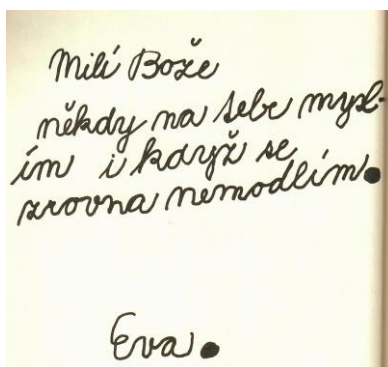 Milí Bože
někdy na tebe mysl-
ím i když se
zrovna nemodlím.
Eva.